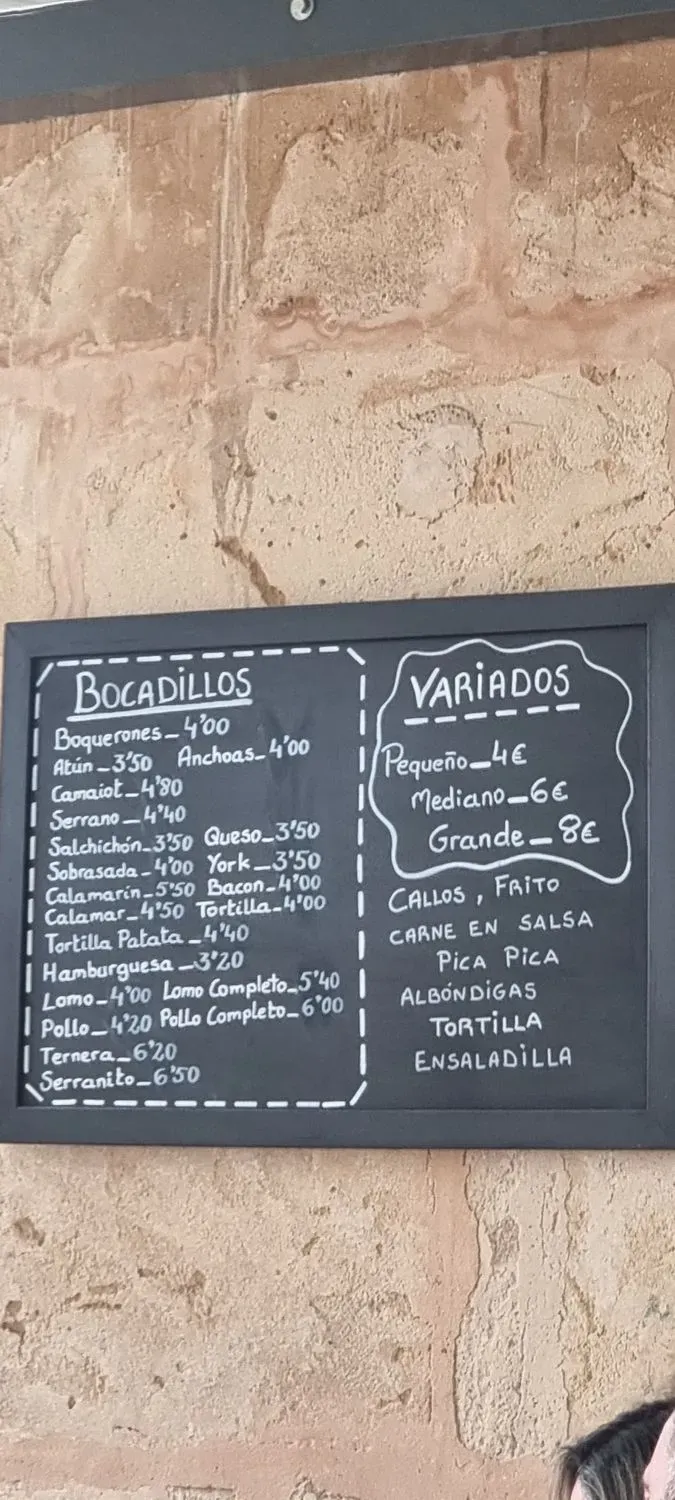 BOCADILLOS
Boquerones_4'00
Atún_3'50 Anchoas_4'00
Camaiot_4'80
Serrano_4'40
Salchichón_3'50 Queso_3'50
Sobrasada_4'00 York_3'50
Calamarín_5'50 Bacon_4'00
Calamar_4'50 Tortilla_4'00
Tortilla Patata_4'40
Hamburguesa_3'20
Lomo_4'00 Lomo Completo_5'40
Pollo_4'20 Pollo Completo_6'00
Ternera_6'20
Serranito_6'50
VARIADOS
Pequeño_4€
Mediano_6€
Grande_8€
CALLOS, FRITO
CARNE EN SALSA
PICA PICA
ALBÓNDIGAS
TORTILLA
ENSALADILLA